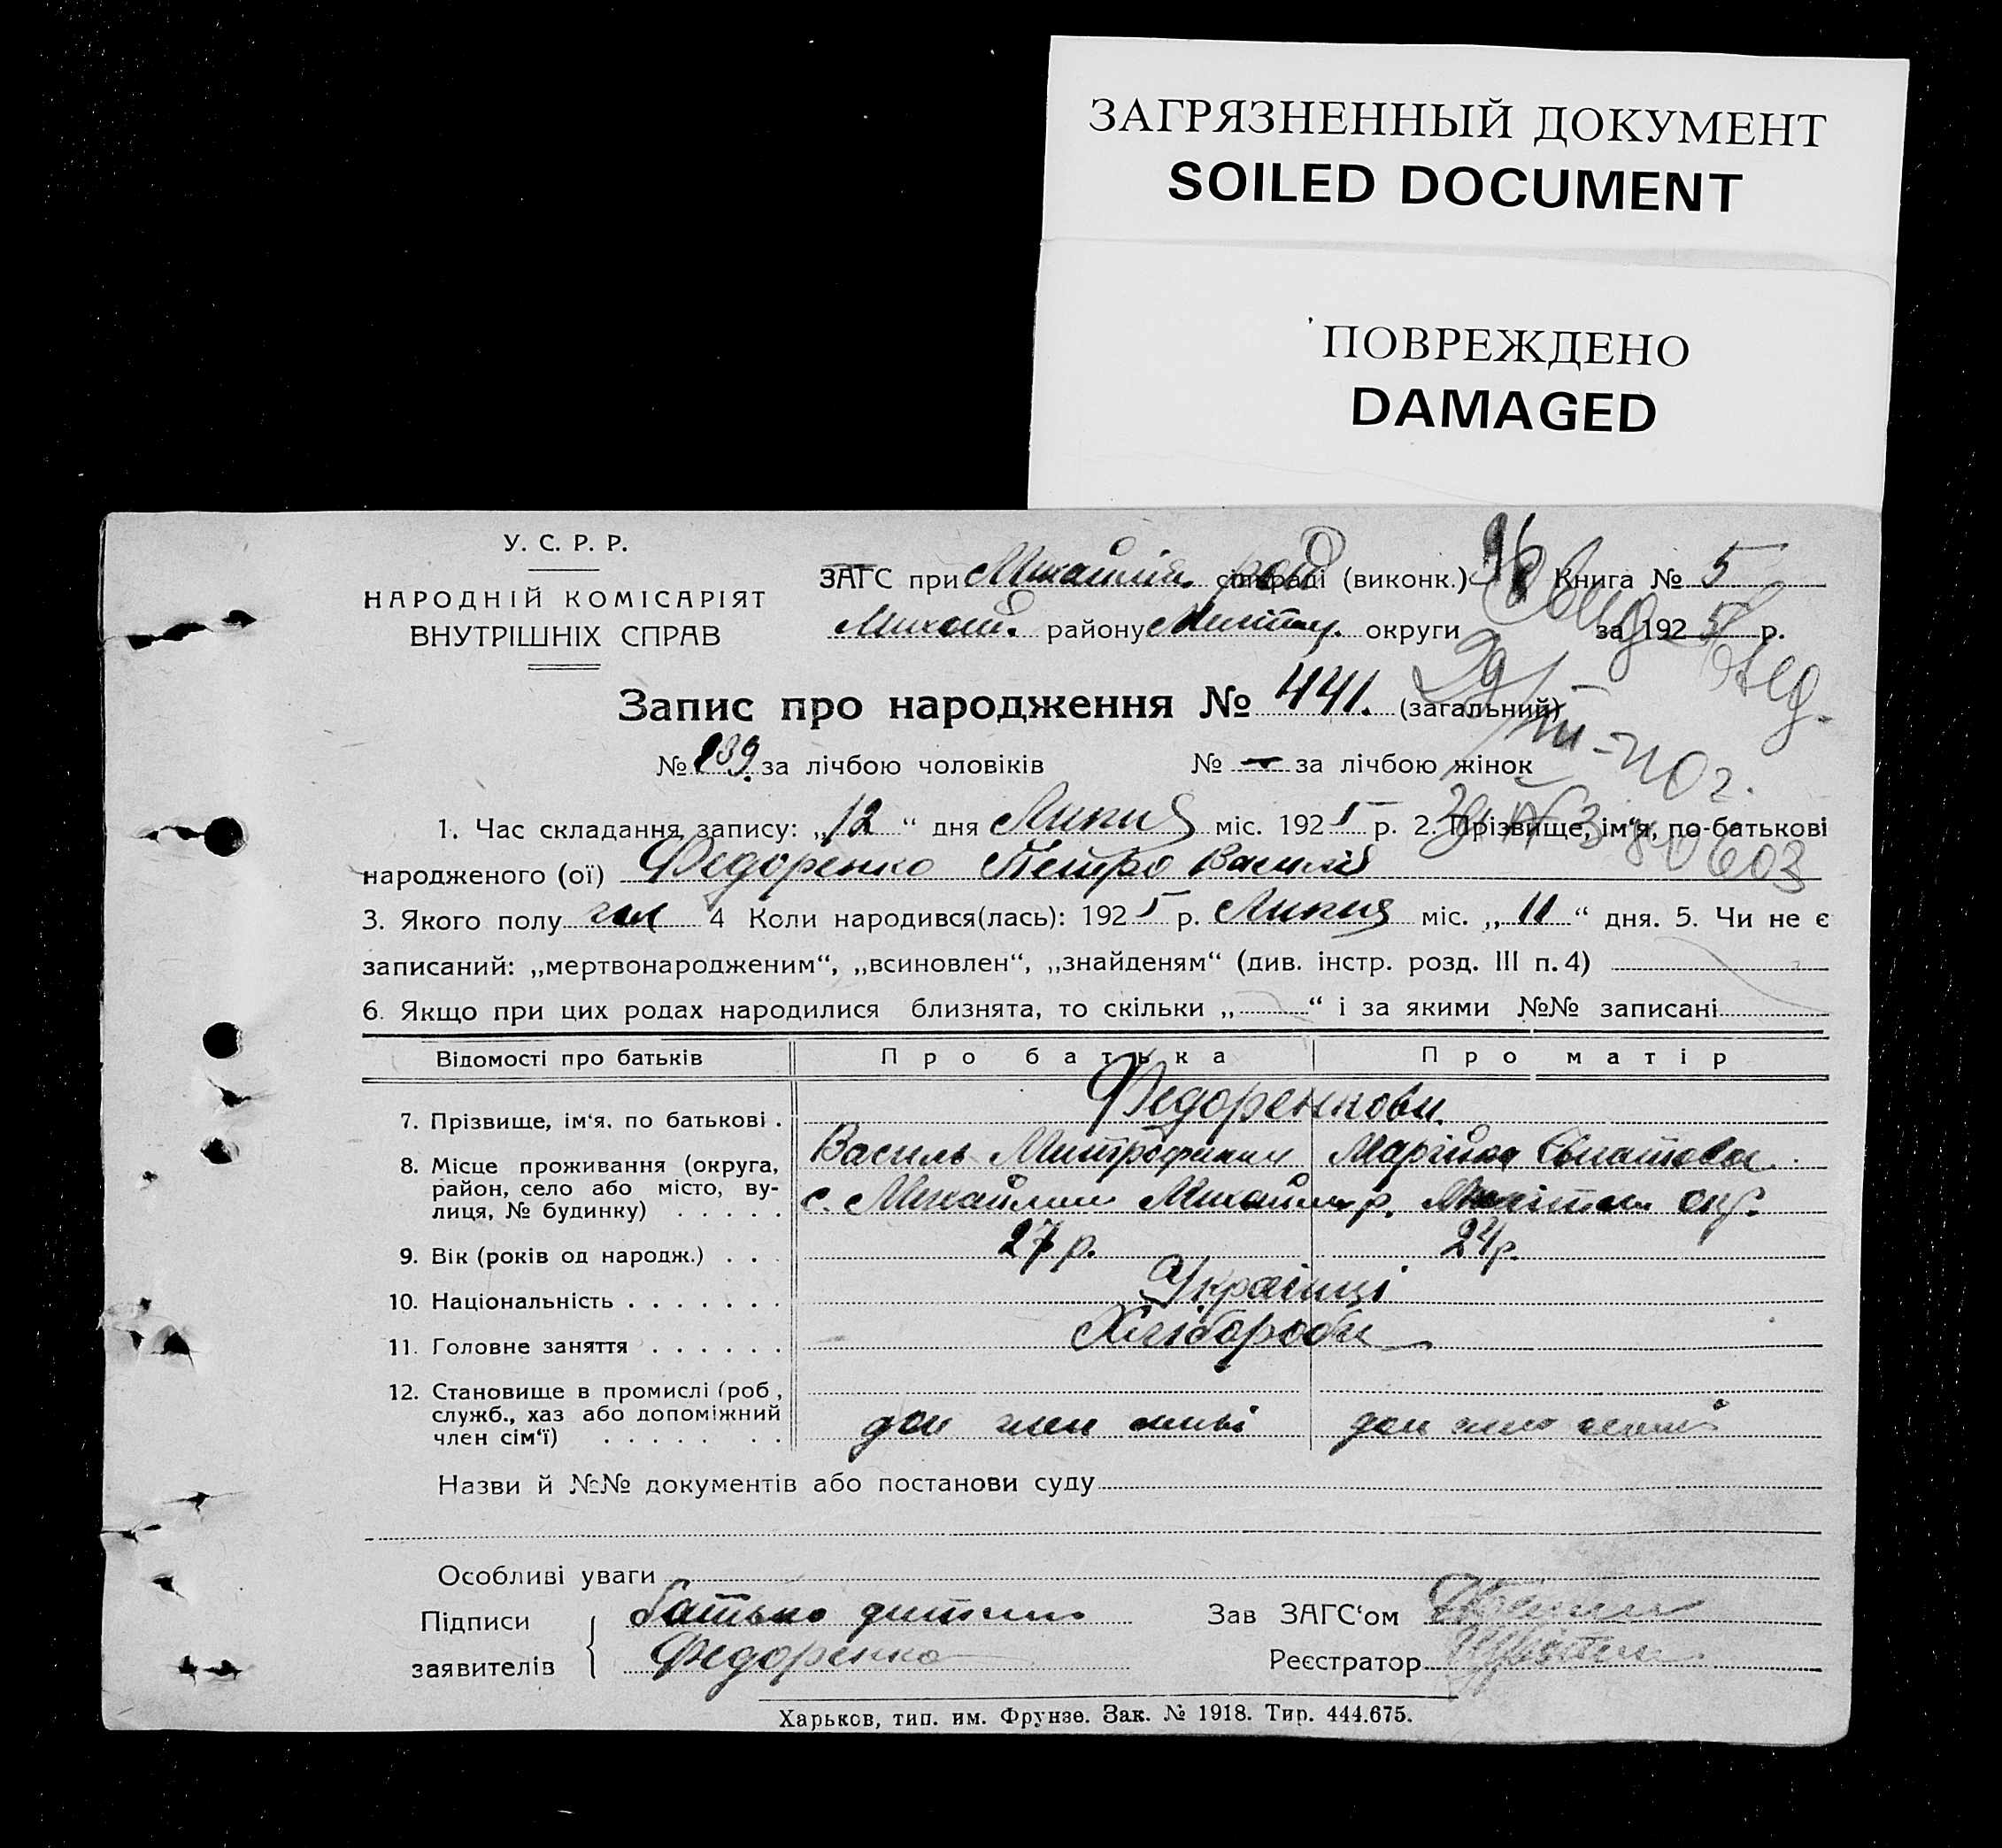 ЗАГРЯЗНЕННЫЙ ДОКУМЕНТ
SOILED DOCUMENT
ПОВРЕЖДЕНО
DAMAGED
У. С. Р. Р.
НАРОДНІЙ КОМІСАРІЯТ
ВНУТРІШНІХ СПРАВ
ЗАГС при Михайлів. рай (виконк.) Книга № 5
Михай. району Меліт. округи за 1925 р.
Запис про народження № 441. (загальний)
№ 239. за лічбою чоловіків № — за лічбою жінок
1. Час складання запису: „12“ дня Липня міс. 1925 р. 2. Прізвище, ім‘я, по-батькові
народженого (ої) Федоренко Петро Василів
3. Якого полу чол 4 Коли народився(лась): 1925 р. Липня міс. „11“ дня. 5. Чи не є
записаний: „мертвонародженим“, „всиновлен“, „знайденям“ (див. інстр. розд. III п. 4)
6. Якщо при цих родах народилися близнята, то скільки „ “ і за якими №№ записані
Відомості про батьків Про батька Про матір
7. Прізвище, ім‘я. по батькові . Федоренкови.
8. Місце проживання (округа, Василь Митрофанов
район, село або місто, ву-
лиця, № будинку) . . . . . с. окр.
9. Вік (років од народж.) . . . 27 р. 24 р.
10. Національність . . . . . . . Українці
11. Головне заняття . . . . . . Хлібороби
12. Становище в промислі (роб,
служб., хаз або допоміжний
член сім‘ї) . . . . . . . доп член сімї доп член
Назви й №№ документів або постанови суду
Особливі уваги
Підписи батько дитини Зав ЗАГС‘ом
заявителів Федоренко Реєстратор
Харьков, тип. им. Фрунзе. Зак. № 1918. Тир. 444.675.